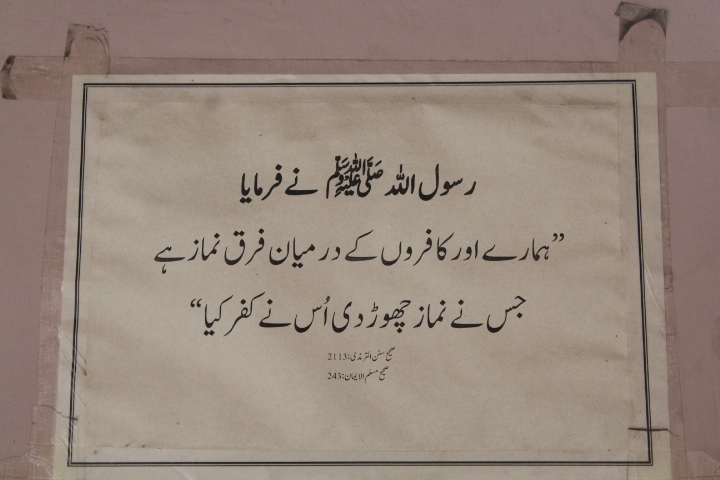 رسول اللہ ﷺ نے فرمایا
”ہمارے اور کافروں کے درمیان فرق نماز ہے
جس نے نماز چھوڑ دی اُس نے کفر کیا“
صحیح سنن الترمذی:2113
صحیح مسلم الایمان:243